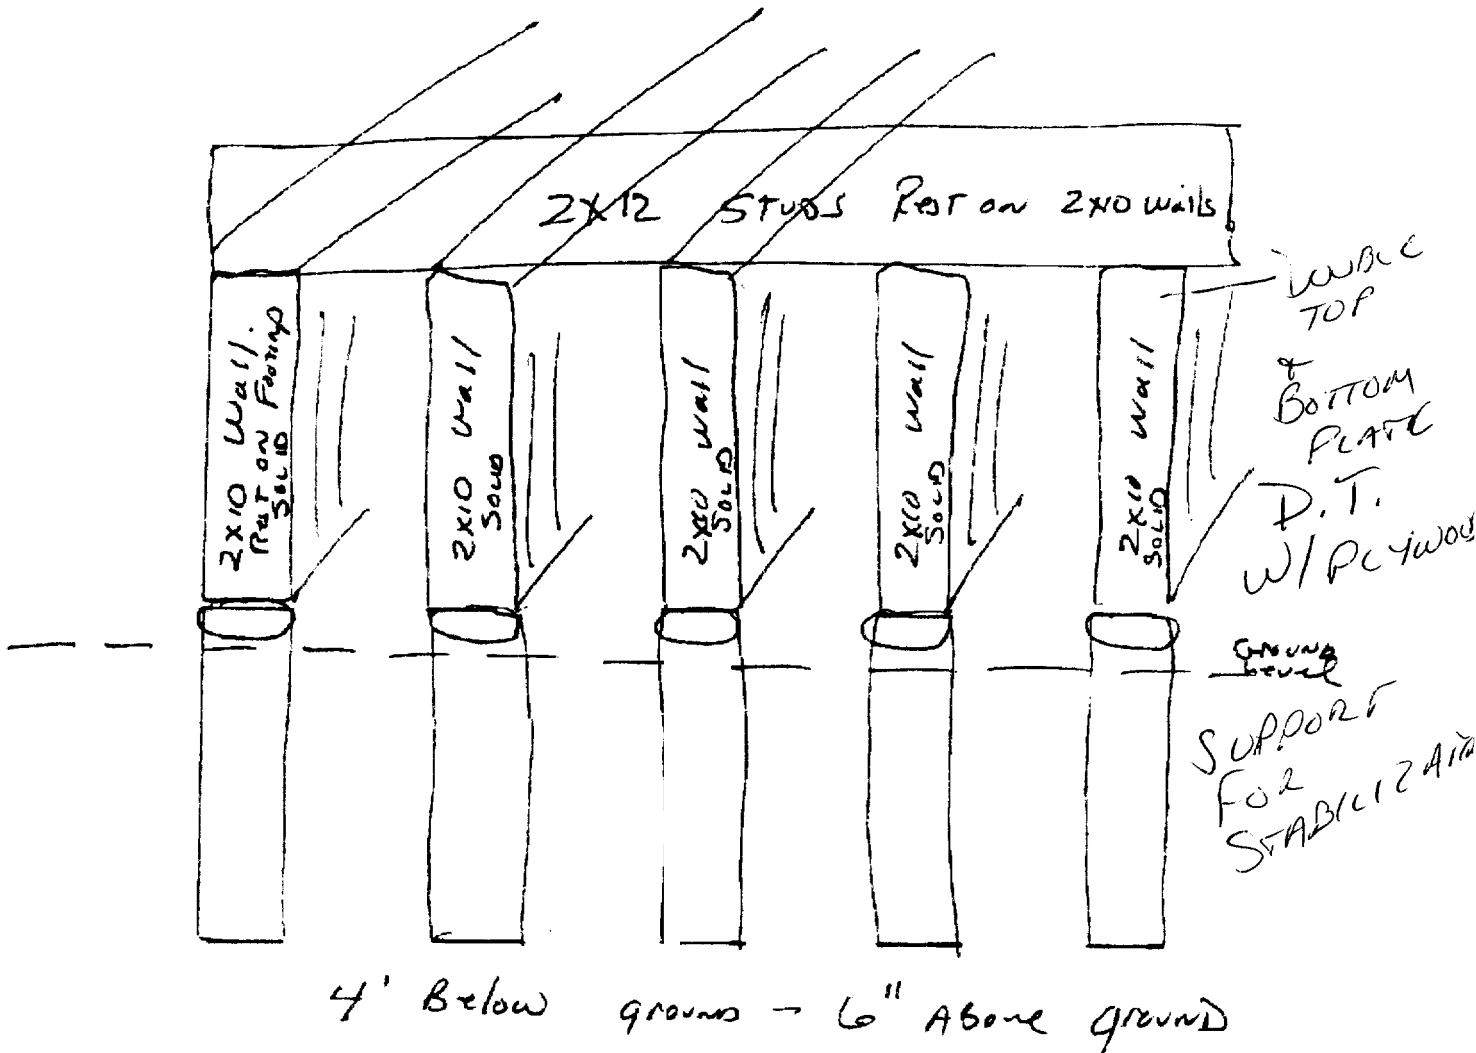 2X12 STUDS Rest on 2X10 Walls
2X10 Wall.
Rest on Footings
SOLID
2X10 Wall
SOLID
2X10 Wall
SOLID
2X10 Wall
SOLID
2X10 Wall
SOLID
DOUBLE
TOP
&
BOTTOM
PLATE
D.T.
W/ PLYWOO
Ground
Level
SUPPORT
FOR
STABILIZATI
4' Below ground - 6" Above ground